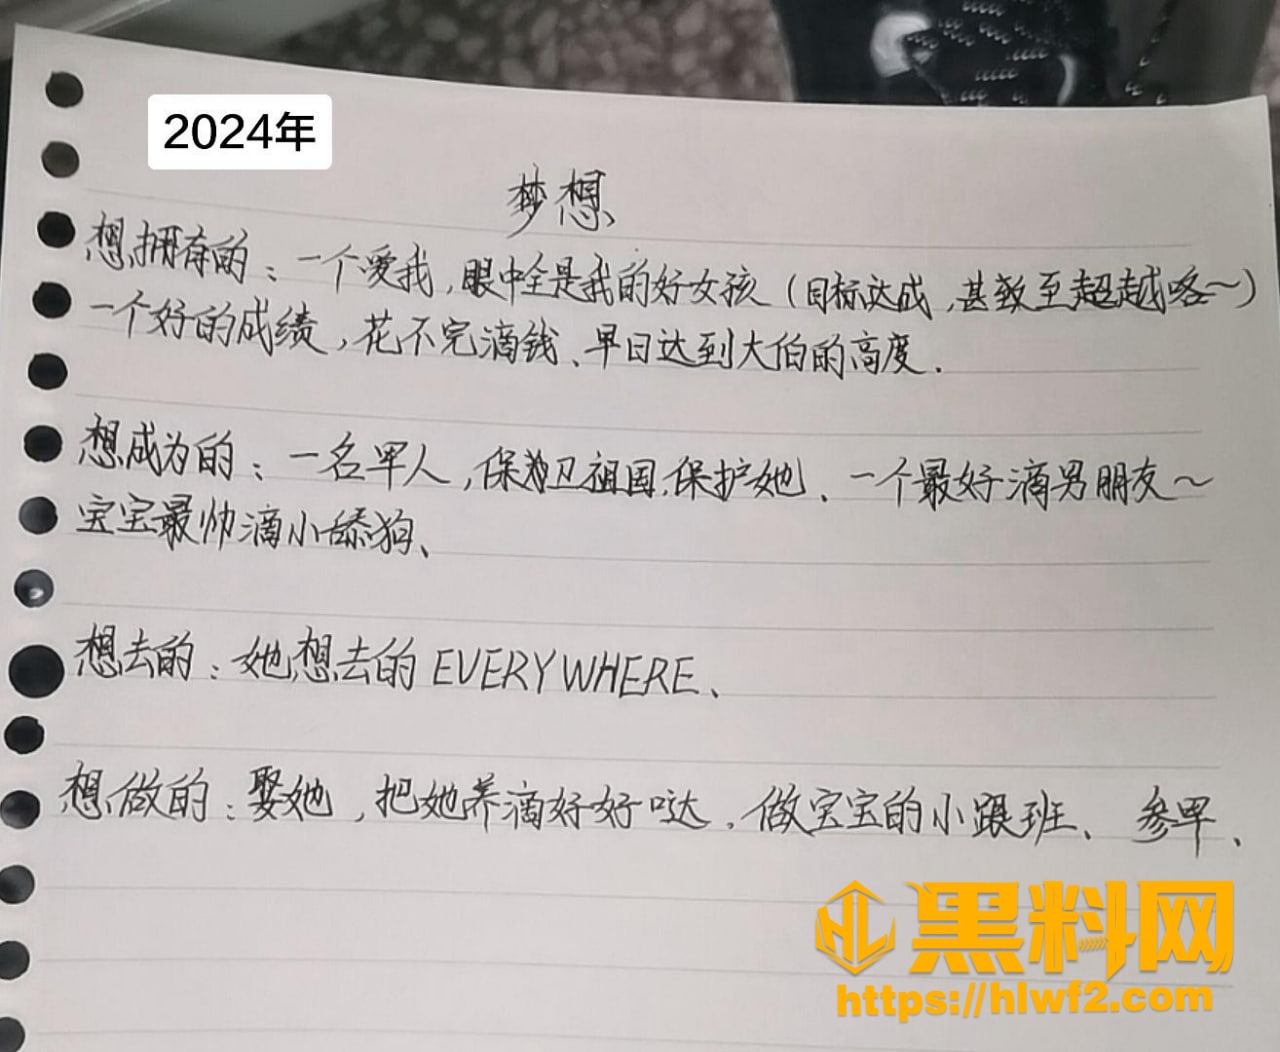 2024年
梦想
想拥有的：一个爱我，眼中全是我的好女孩（目标达成，甚致至超越咯～）
一个好的成绩，花不完滴钱、早日达到大伯的高度.
想成为的：一名军人，保卫祖国，保护她、一个最好滴男朋友～
宝宝最帅滴小舔狗、
想去的：她想去的 EVERYWHERE、
想做的：娶她，把她养滴好好哒，做宝宝的小跟班、参军、
HL 黑料网
https://hlwf2.com